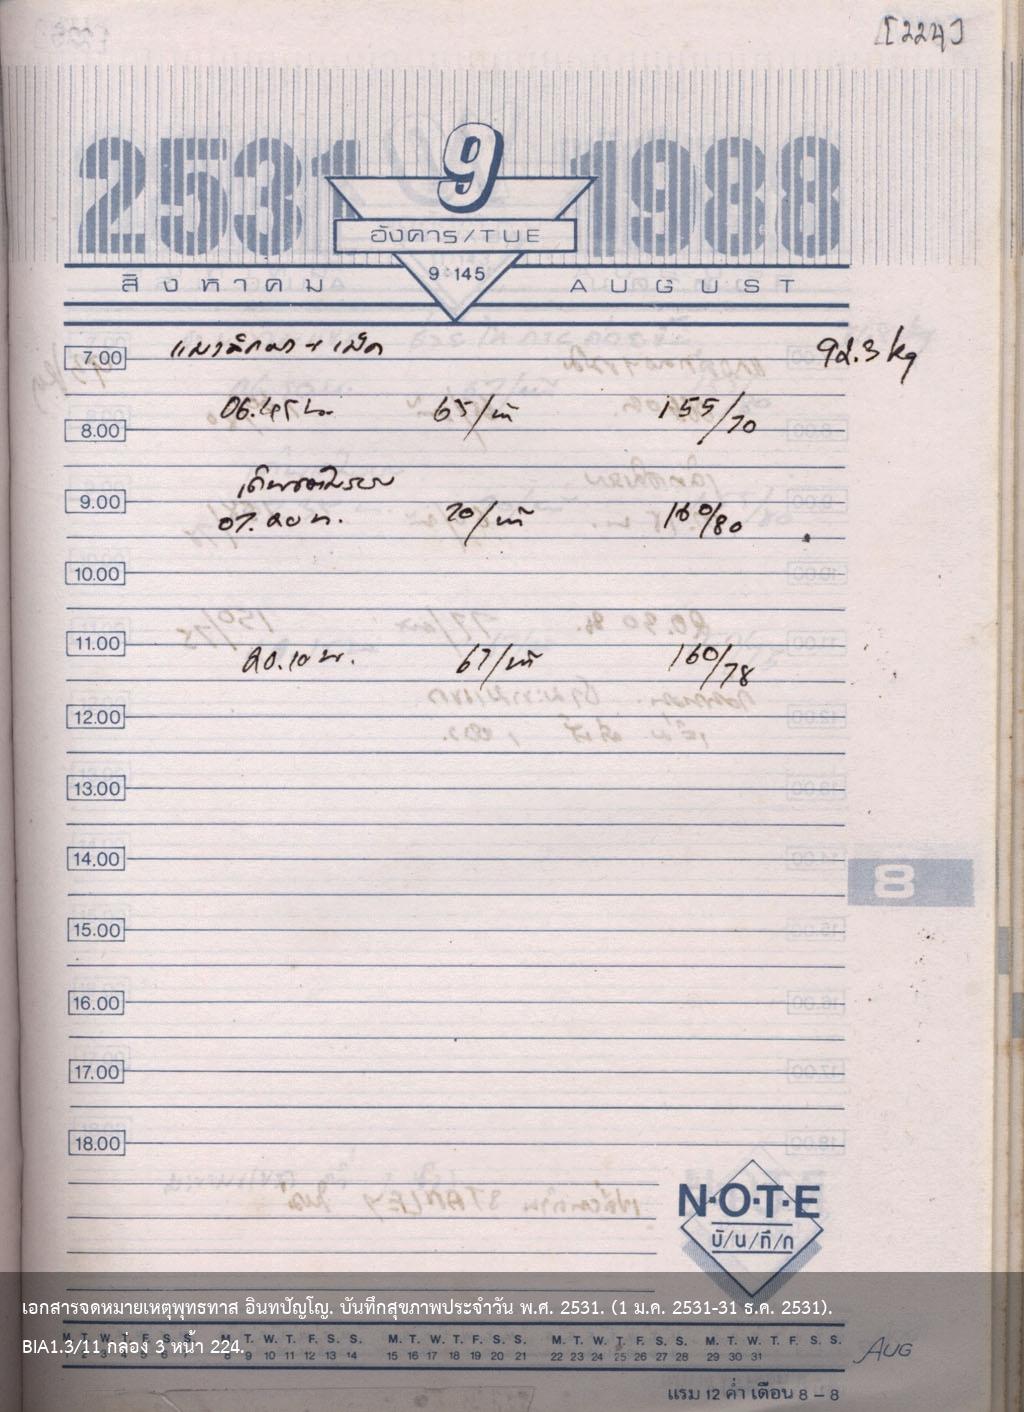 [224]
2531 9 1988
อังคาร/TUE
9:145
สิงหาคม AUGUST
7.00 92.3 kg
06.45 น. 65/นาที 155/70
8.00
9.00
07.20 น. 70/นาที 160/80
10.00
11.00
20.10 น. 67/นาที 160/78
12.00
13.00
14.00
8
15.00
16.00
17.00
18.00
N·O·T·E
บั/น/ทึ/ก
เอกสารจดหมายเหตุพุทธทาส อินทปัญโญ. บันทึกสุขภาพประจำวัน พ.ศ. 2531. (1 ม.ค. 2531-31 ธ.ค. 2531).
M. T. W. T. F. S. S. M. T. W. T. F. S. S. M. T. W. T. F. S. S. M. T. W. T. F. S. S. M. T. W. T. F. S. S.
BIA1.3/11 กล่อง 3 หน้า 224.
2 3 4 5 6 7 8 9 10 11 12 13 14 15 16 17 18 19 20 21 22 23 24 25 26 27 28 29 30 31
AUG
แรม 12 ค่ำ เดือน 8 – 8